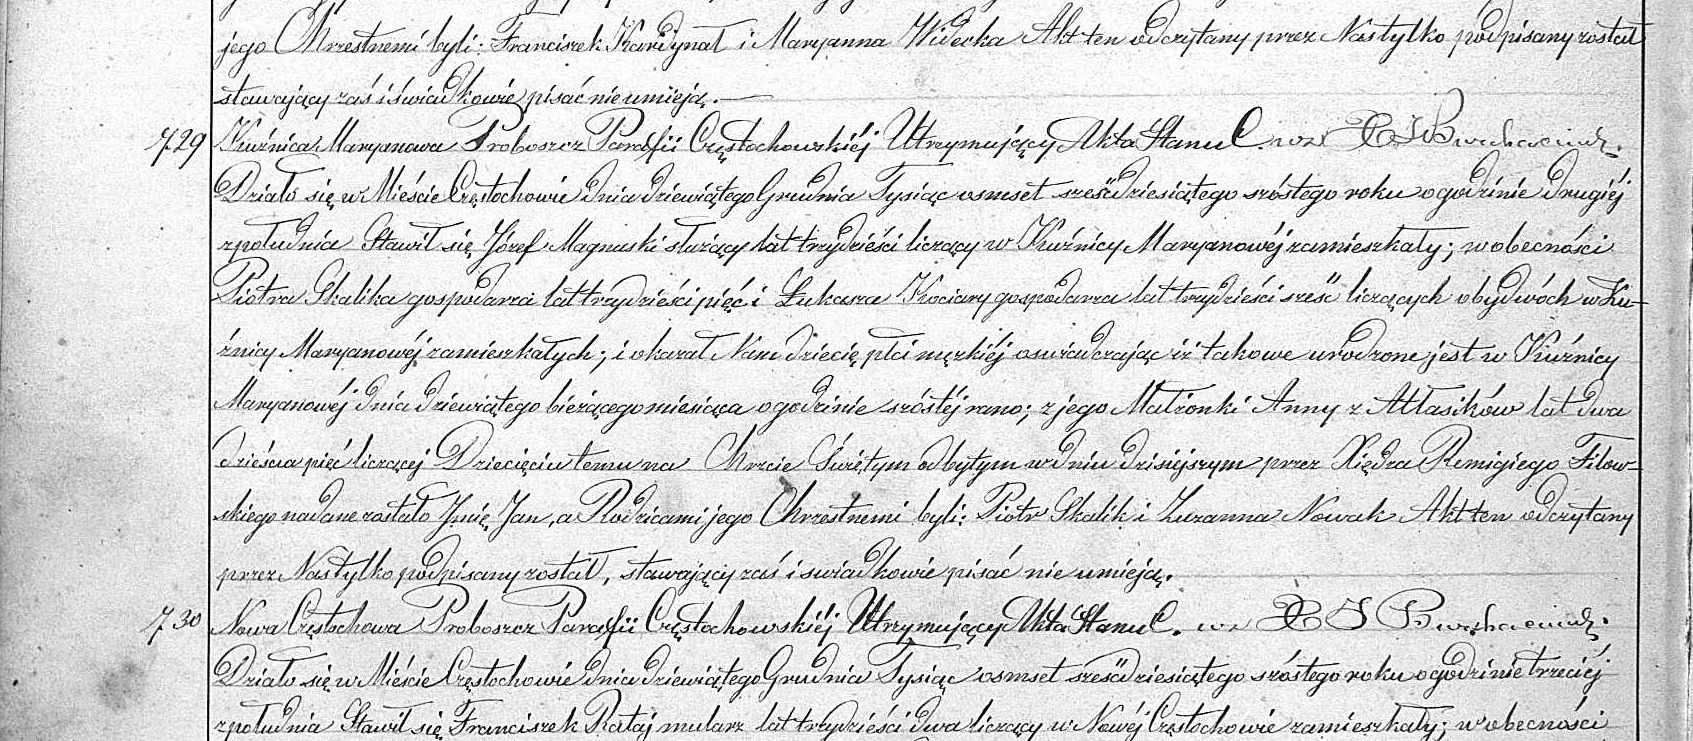 jego Chrzestnemi byli: Franciszek Kardynał i Maryanna Widecka Akt ten odczytany przez Nas tylko podpisany został
stawający zaś i świadkowie pisać nie umieją.
729 Kuźnica Maryanowa Proboszcz Parafii Częstochowskiéj Utrzymujący Akta Stanu C.
Działo się w Mieście Częstochowie dnia dziewiątego Grudnia Tysiąc osmset sześćdziesiątego szóstego roku o godzinie drugiéj
z południa Stawił się Józef Magnuski służący lat trzydzieści liczący w Kuźnicy Maryanowéj zamieszkały; w obecności
Piotra Skalika gospodarza lat trzydzieści pięć i Łukasza Kociary gospodarza lat trzydzieści sześć liczących obydwóch w Ku-
źnicy Maryanowéj zamieszkałych; i okazał Nam dziecię płci męzkiéj oswiadczając iż takowe urodzone jest w Kuźnicy
Maryanowéj dnia dziewiątego bieżącego miesiąca o godzinie szóstéj rano; z jego Małżonki Anny z Atłasików lat dwa
dzieścia pięć liczącej Dziecięciu temu na Chrzcie Świętym odbytym w dniu dzisiejszym przez Xiędza Remigiego Filow-
skiego nadane zostało Jmię Jan, a Rodzicami jego Chrzestnemi byli: Piotr Skalik i Zuzanna Nowak Akt ten odczytany
przez Nas tylko podpisany został, stawający zaś i swiadkowie pisać nie umieją.
730 Nowa Częstochowa Proboszcz Parafii Częstochowskiéj Utrzymujący Akta Stanu C.
Działo się w Mieście Częstochowie dnia dziewiątego Grudnia Tysiąc osmset sześćdziesiątego szóstego roku o godzinie trzeciéj
z południa Stawił się Franciszek Rataj mularz lat trzydzieści dwa liczący w Nowéj Częstochowie zamieszkały; w obecności